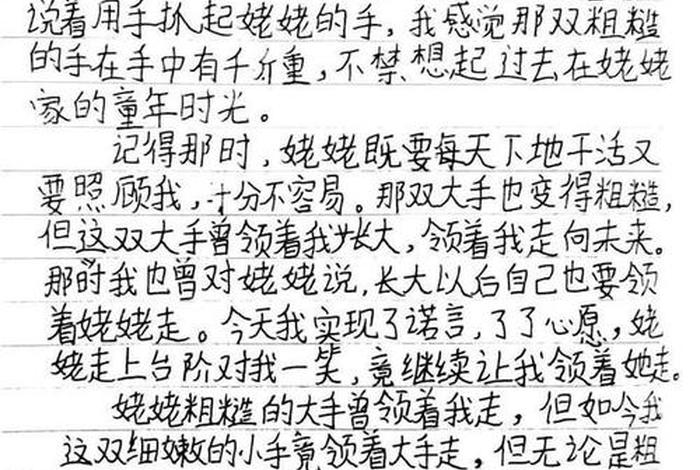 说着用手扒起姥姥的手，我感觉那双粗糙
的手在手中有千斤重，不禁想起过去在姥姥
家的童年时光。
记得那时，姥姥既要每天下地干活又
要照顾我，十分不容易。那双大手也变得粗糙，
但这双大手曾领着我长大，领着我走向未来。
那时我也曾对姥姥说，长大以后自己也要领
着姥姥走。今天我实现了诺言，了了心愿，姥
姥走上台阶对我一笑，竟继续让我领着她走。
姥姥粗糙的大手曾领着我走，但如今我
这双细嫩的小手竟领着大手走，但无论是粗